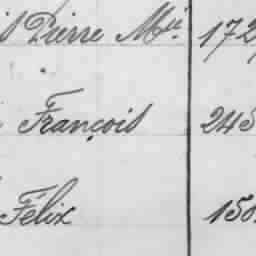 Pierre Mii 172
François 245
Félix 150